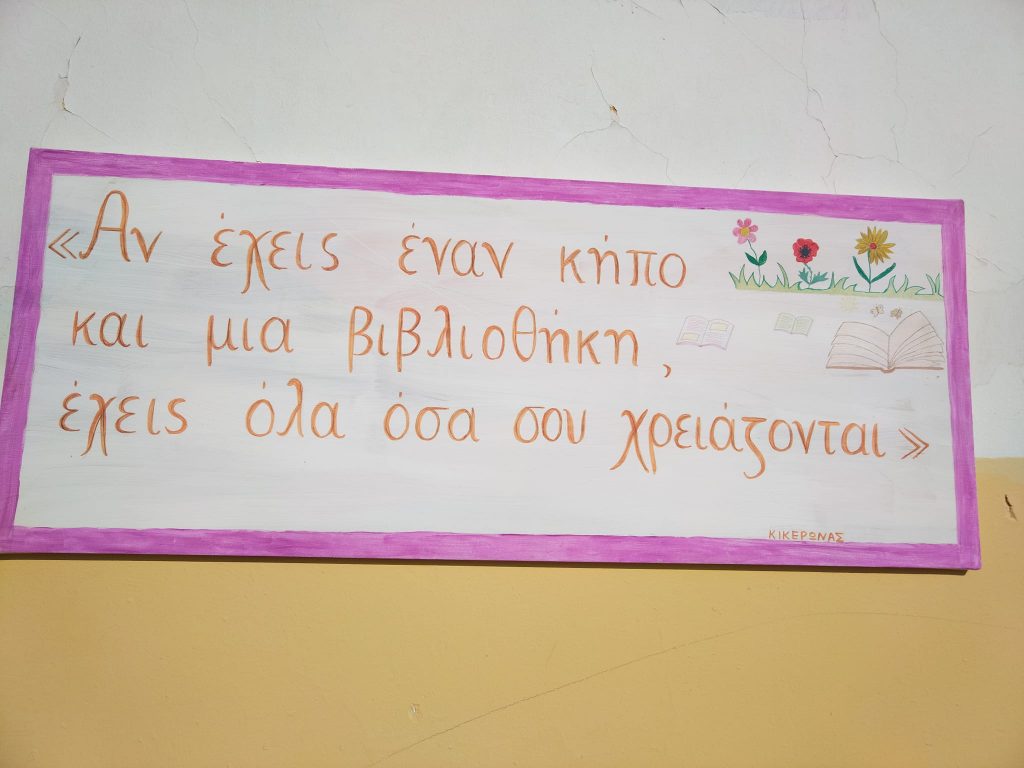 «Αν έχεις έναν κήπο
και μια βιβλιοθήκη,
έχεις όλα όσα σου χρειάζονται»
ΚΙΚΕΡΩΝΑΣ